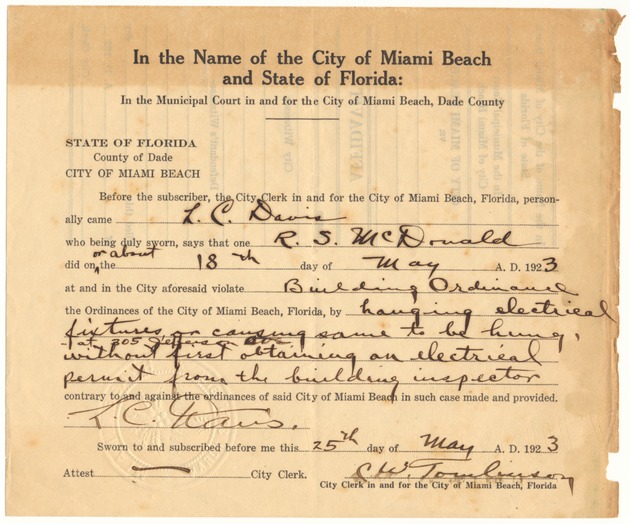 In the Name of the City of Miami Beach
and State of Florida:
In the Municipal Court in and for the City of Miami Beach, Dade County
STATE OF FLORIDA
County of Dade
CITY OF MIAMI BEACH
Before the subscriber, the City Clerk in and for the City of Miami Beach, Florida, person-
ally came L. C. Davis
who being duly sworn, says that one R. S. McDonald
or about
did on the 18th day of May A. D. 1923
at and in the City aforesaid violate Building Ordinance
the Ordinances of the City of Miami Beach, Florida, by hanging electrical
fixtures or causing same to be hung,
at 305 Jefferson Ave
without first obtaining an electrical
permit from the building inspector
contrary to and against the ordinances of said City of Miami Beach in such case made and provided.
L. C. Davis.
Sworn to and subscribed before me this 25th day of May A. D. 1923
Attest City Clerk. C. W. Tomlinson
City Clerk in and for the City of Miami Beach, Florida